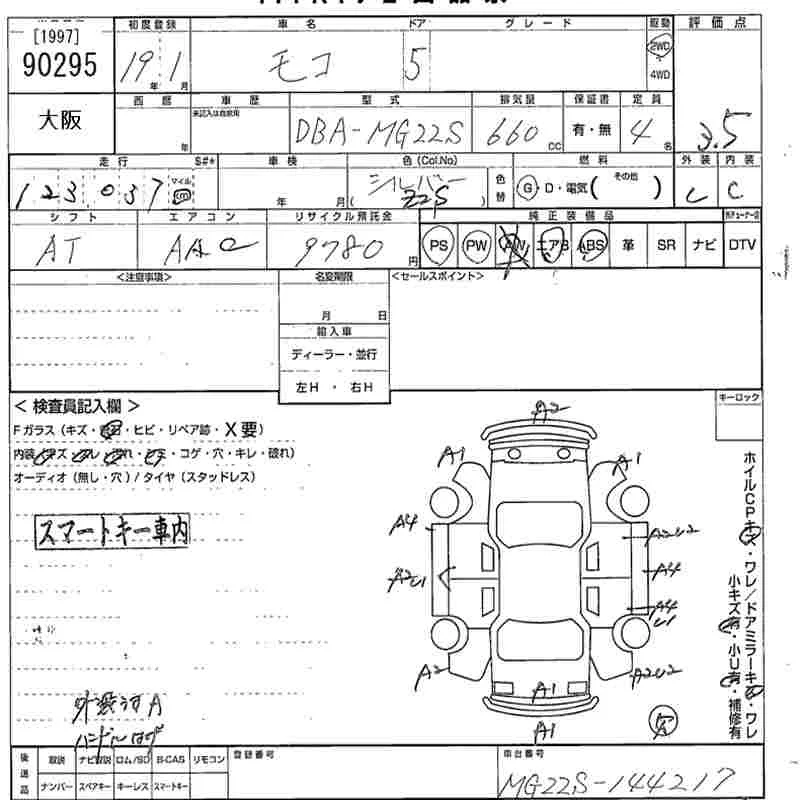 [1997]
90295
大阪
初度登録 車名 ドア グレード 駆動 評価点
19年 1月 モコ 5 2WD 4WD 3.5
西暦 車歴 型式 排気量 保証書 定員
年 未記入は自家用 DBA-MG22S 660cc 有・無 4名
走行 S#* 車検 色(Col.No) 燃料 外装 内装
123,037 マイル km 年 月 シルバー (Z2S) 色替 G・D・電気( その他 ) C C
シフト エアコン リサイクル預託金 純正装備品
AT AAC 9780円 PS PW AW エアB ABS 革 SR ナビ DTV
<注意事項> 名変期限 <セールスポイント>
月 日
輸入車
ディーラー・並行
左H ・ 右H
< 検査員記入欄 > キーロック
Fガラス(キズ・飛石・ヒビ・リペア跡・X要)
内装(キズ・スレ・汚れ・シミ・コゲ・穴・キレ・破れ)
オーディオ(無し・穴)/タイヤ(スタッドレス)
スマートキー車内
A2
A1 A1
A4 A2U2
A2U1 A4
A4
U1
A2 A2U2
A1
A1
ホイルCPキズ・ワレ/ドアミラーキズ・ワレ
小キズ有・小U有・補修有
外装うすA
ハンドルハゲ
後送品 取説 ナビ取説 ロム/SD B-CAS リモコン 登録番号 車台番号
ナンバー スペアキー キーレス スマートキー MG22S-144217